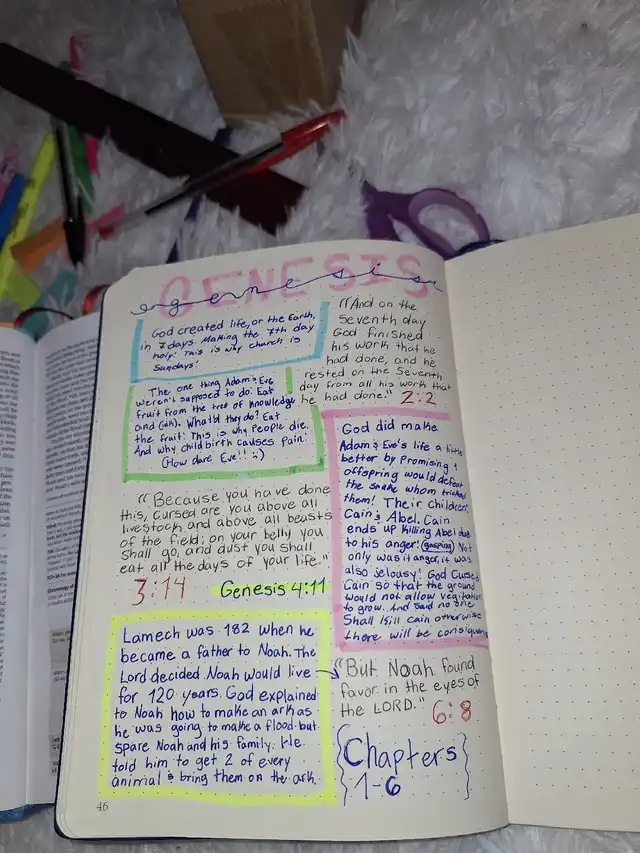 GENESIS
genesis
God created life, or the Earth,
in 7 days. Making the 7th day
holy! This is why church is
Sundays!
"And on the
Seventh day
God finished
his work that he
had done, and he
rested on the Seventh
day from all his work that
he had done." 2:2
The one thing Adam & Eve
weren't supposed to do: Eat
fruit from the tree of knowledge
and (uh). What'd they do? Eat
the fruit! This is why People die.
And why child birth causes Pain!
(How dare Eve!! :)
God did make
Adam & Eve's life a little
better by promising 1
offspring would defeat
the snake whom tricked
them! Their children,
Cain & Abel. Cain
ends up killing Abel due
to his anger! (gasping) Not
only was it anger, it was
also jelousy! God Cursed
Cain so that the ground
would not allow vegitation
to grow. And said no one
Shall kill cain otherwise
there will be
"Because you have done
this, cursed are you above all
livestock and above all beasts
of the field; on your belly you
Shall go, and dust you shall
eat all the days of your life."
3:14 Genesis 4:11
Lamech was 182 when he
became a father to Noah. The
Lord decided Noah would live
for 120 years. God explained
to Noah how to make an ark as
he was going to make a flood but
spare Noah and his family. He
told him to get 2 of every
animal & bring them on the ark.
"But Noah found
favor in the eyes of
the LORD." 6:8
{Chapters
1-6}
46